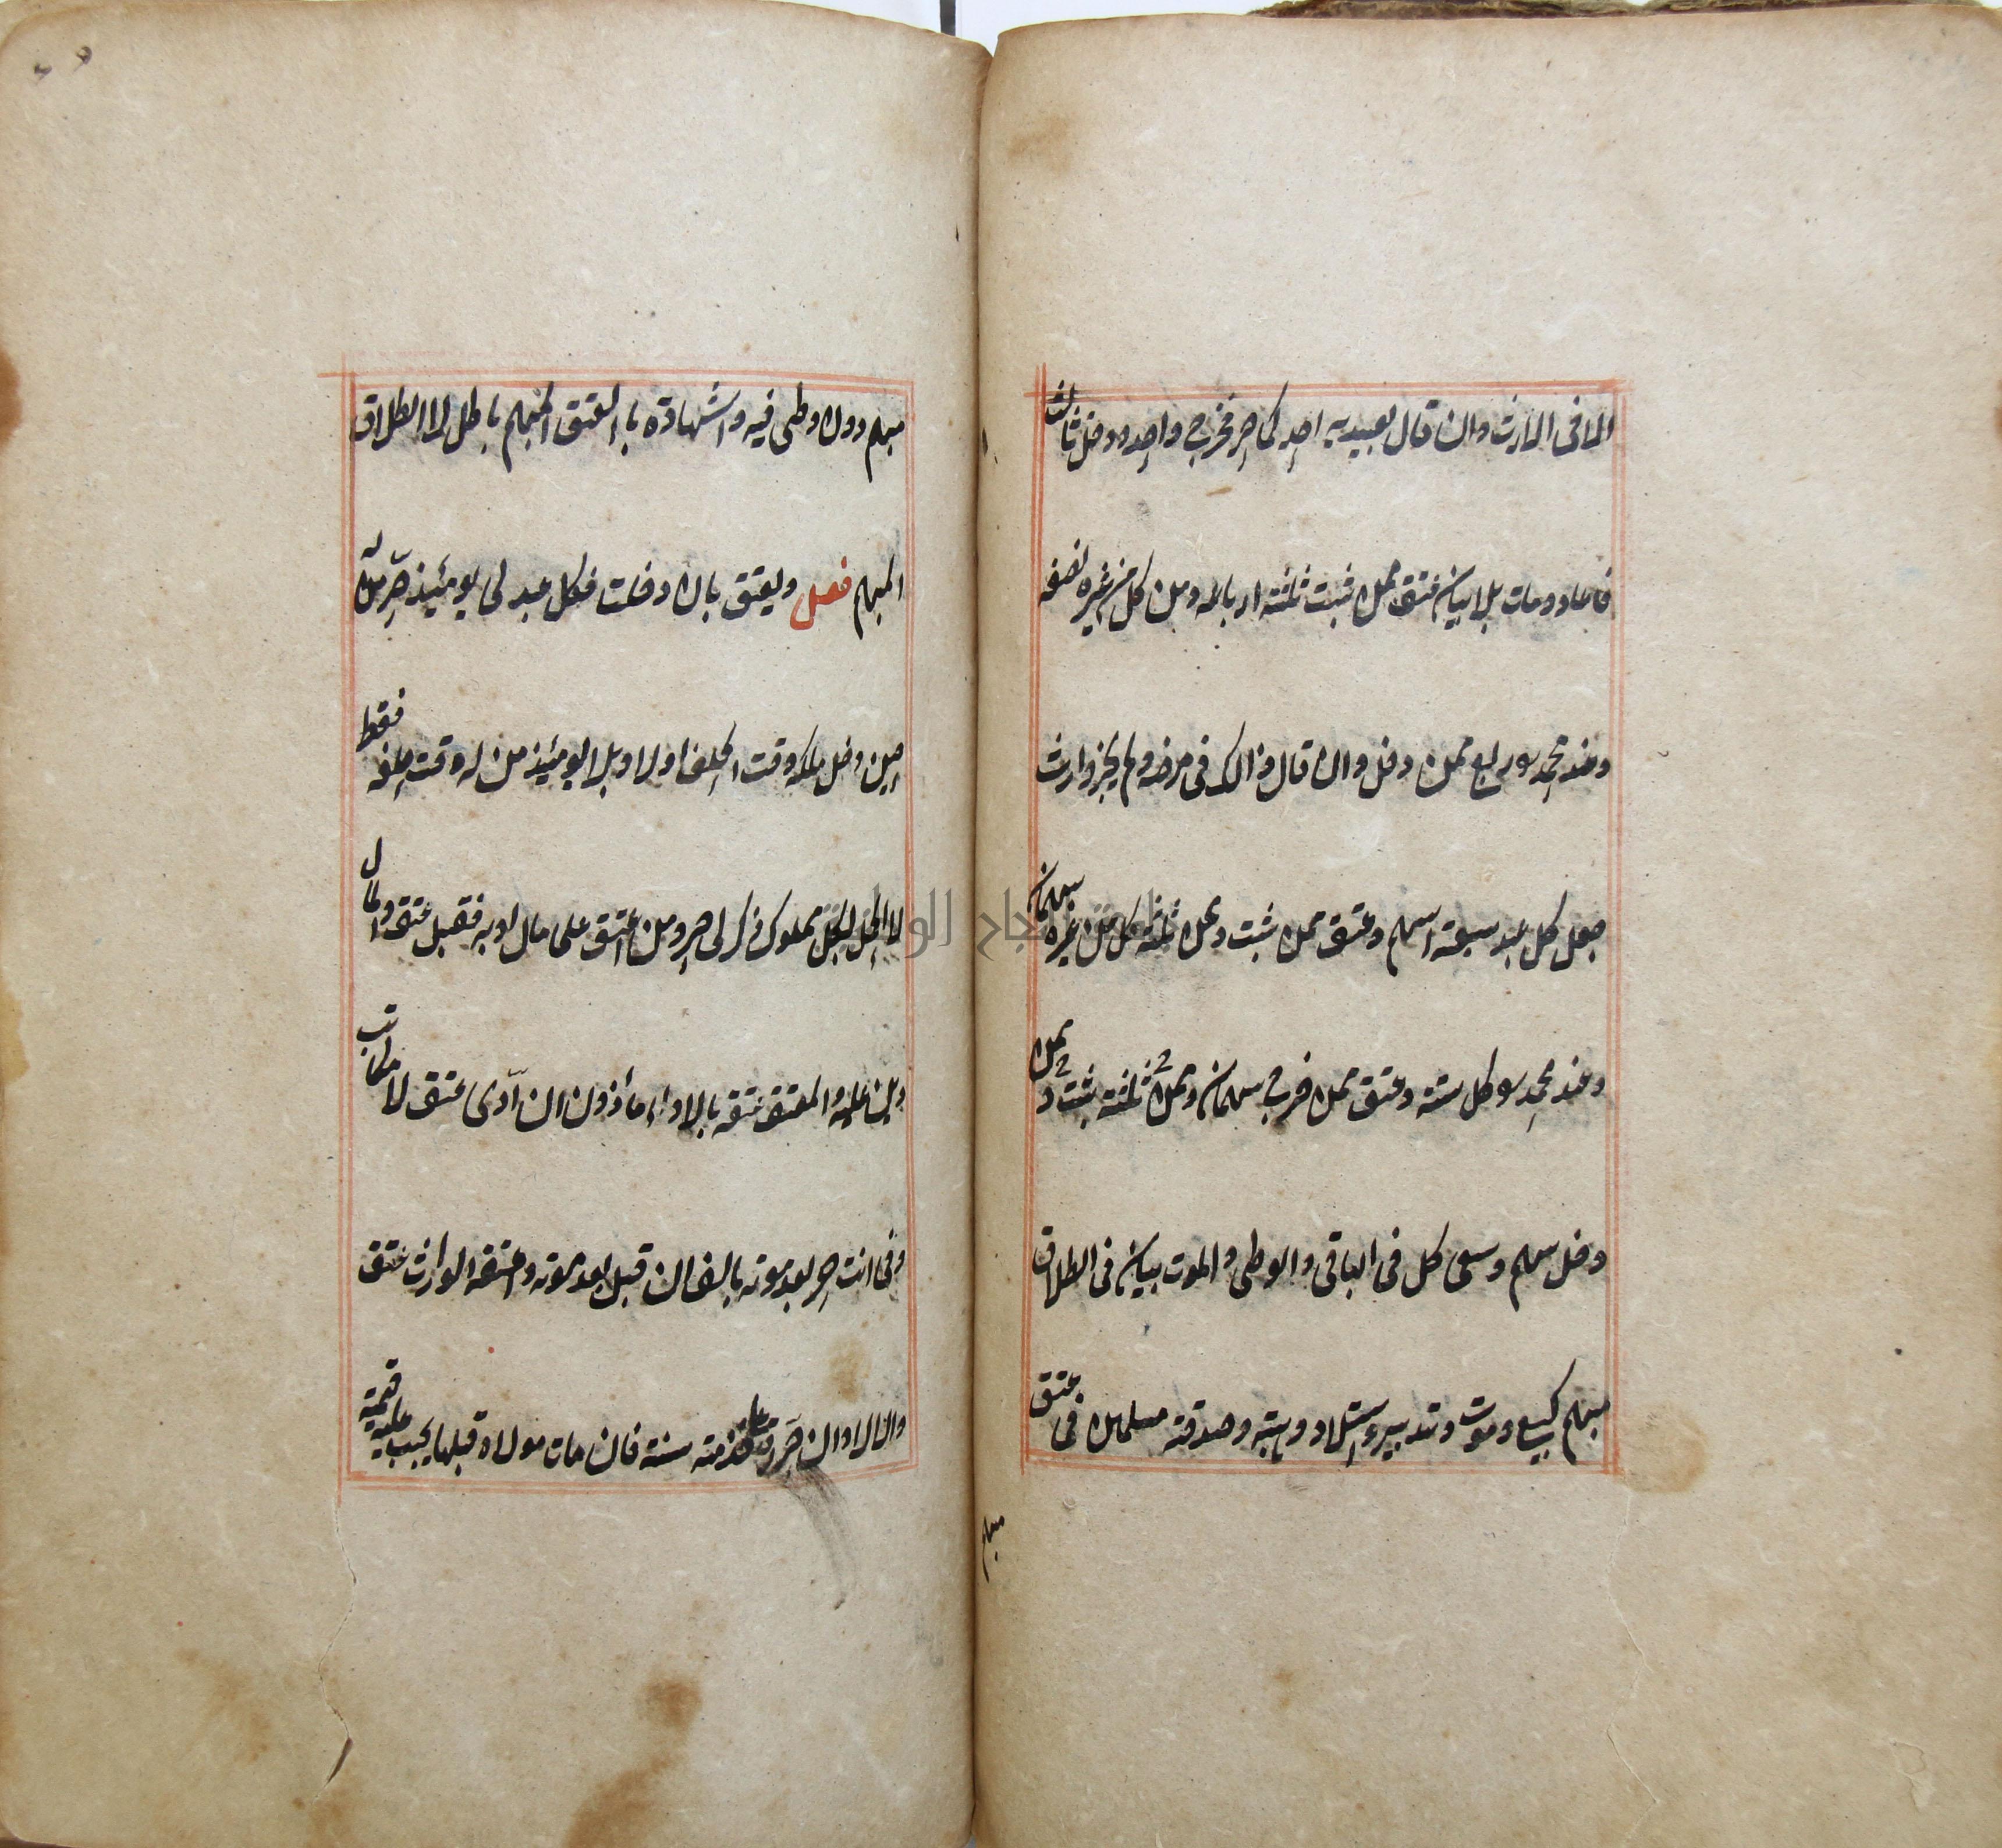 الا في الارث وان قال لعبديه احد كما حر فخرج واحد ودخل ثالث
فاعاد ومات بلا بيان عتق ممن ثبت ثلثة ارباعه ومن كل من غيره نصفه
وعند محمد ربع ممن دخل وان قال ذالك في مرضه ولم يجز وارث
جعل كل عبد سبعة اسهم وعتق ممن ثبت ثلثة ومن كل من غيره سهمان
وعند محمد كل ستة وعتق ممن خرج سهمان وممن ثبت ثلثة وممن
دخل سهم وسعى كل في الباقي والوطى والموت بيان في الطلاق
مبهم كبيع وموت وتدبير واستيلاد وهبة وصدقة مسلمين في عتق
مبهم
مبهم دون وطى فيه والشهادة بالعتق المبهم باطل لا الطلاق
المبهم فصل ويعتق بان دخلت فكل عبد لي يومئذ حر من له
حين دخل ملكه وقت الحلف اولا وبلا يومئذ من له وقت حلفه فقط
لا الحمل بكل مملوك ذكر لي حر ومن اعتق على مال او به فقبل عتق والمال
دين عليه والمعلق عتقه بالاداء ماذون ان ادى عتق لا مكاتب
وفي انت حر بعد موتي بالف ان قبل بعد موته واعتقه الوارث عتق
والا لا وان حرره على خدمته سنة فان مات مولاه قبلها يجب عليه قيمته